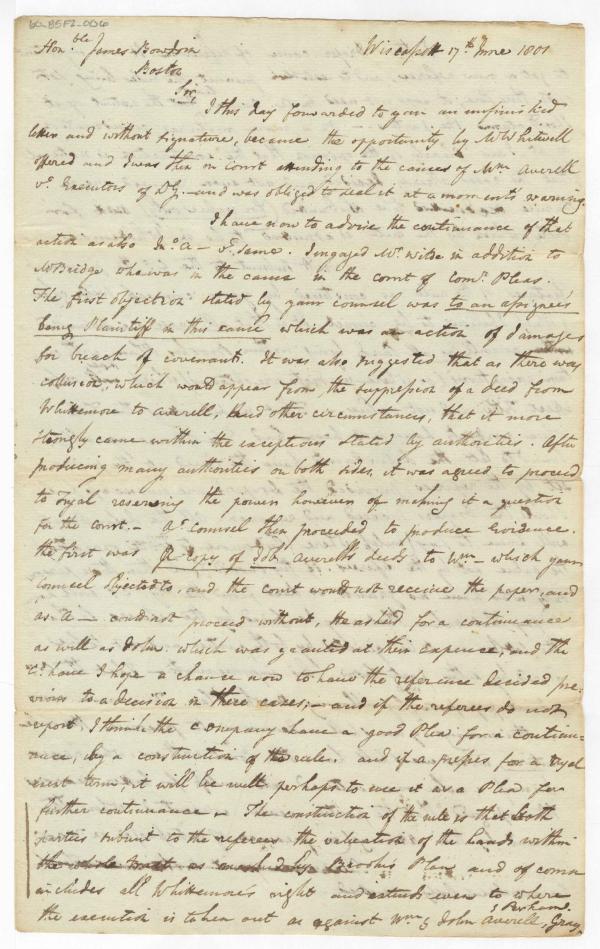 60-85F2-006
Hon.ble James Bowdoin Wiscassett 17th June 1801
Boston
Sir,
I this day forwarded to you an unfinished
letter and without signature, because the opportunity by Mr Whitwell
offered and I was then in court attending to the causes of Wm Averell
vs Executors of DG. and was obliged to seal it at a moments warning.
I have now to advise the continuance of that
action as also Jno A - vs same. I ingaged Mr Wilde in addition to
Mr Bridge who was in the cause in the court of Com. Pleas.
The first objection stated by your counsel was to an assignee's
being Plaintiff in this cause which was an action of damages
for breach of covenant. It was also suggested that as there was
collusion, which would appear from the suppression of a deed from
Whittemore to Averell, and other circumstances, that it more
strongly came within the exceptions stated by authorities. After
producing many authorities on both sides, it was agreed to proceed
to Tryal reserving the powers however of making it a question
for the court. - As counsel then proceeded to produce evidence.
the first was a copy of Job Averell's deeds to Wm - which your
counsel objected to, and the court would not receive the paper, and
as A - could not proceed without, He asked for a continuance
as well as John which was granted at their expence, and the
have I hope a chance now to have the reference decided pre-
vious to a decision in these cases; - and if the referees do not
report, I think the company have a good Plea for a continu-
ance, by a construction of the rule. and if a presses for a tryal
next term, it will be well perhaps to use it as a Plea for
further continuance - The construction of the rule is that both
parties submit to the referees the valuation of the lands within
the whole as Plan and of course
includes all Whittemore's right and extends even to where
the execution is taken out as against Wm & John Averell, Gray
& Parham.